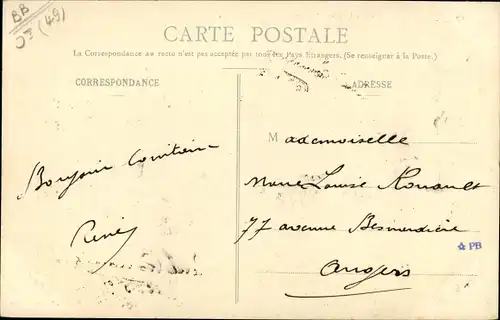 BB
(49)
CARTE POSTALE
La Correspondance au recto n'est pas acceptée par tous les Pays Etrangers. (Se renseigner à la Poste.)
CORRESPONDANCE
ADRESSE
Mademoiselle
Marie Louise Rouault
77 avenue Besnardière
Angers
Bonjour
René
PB